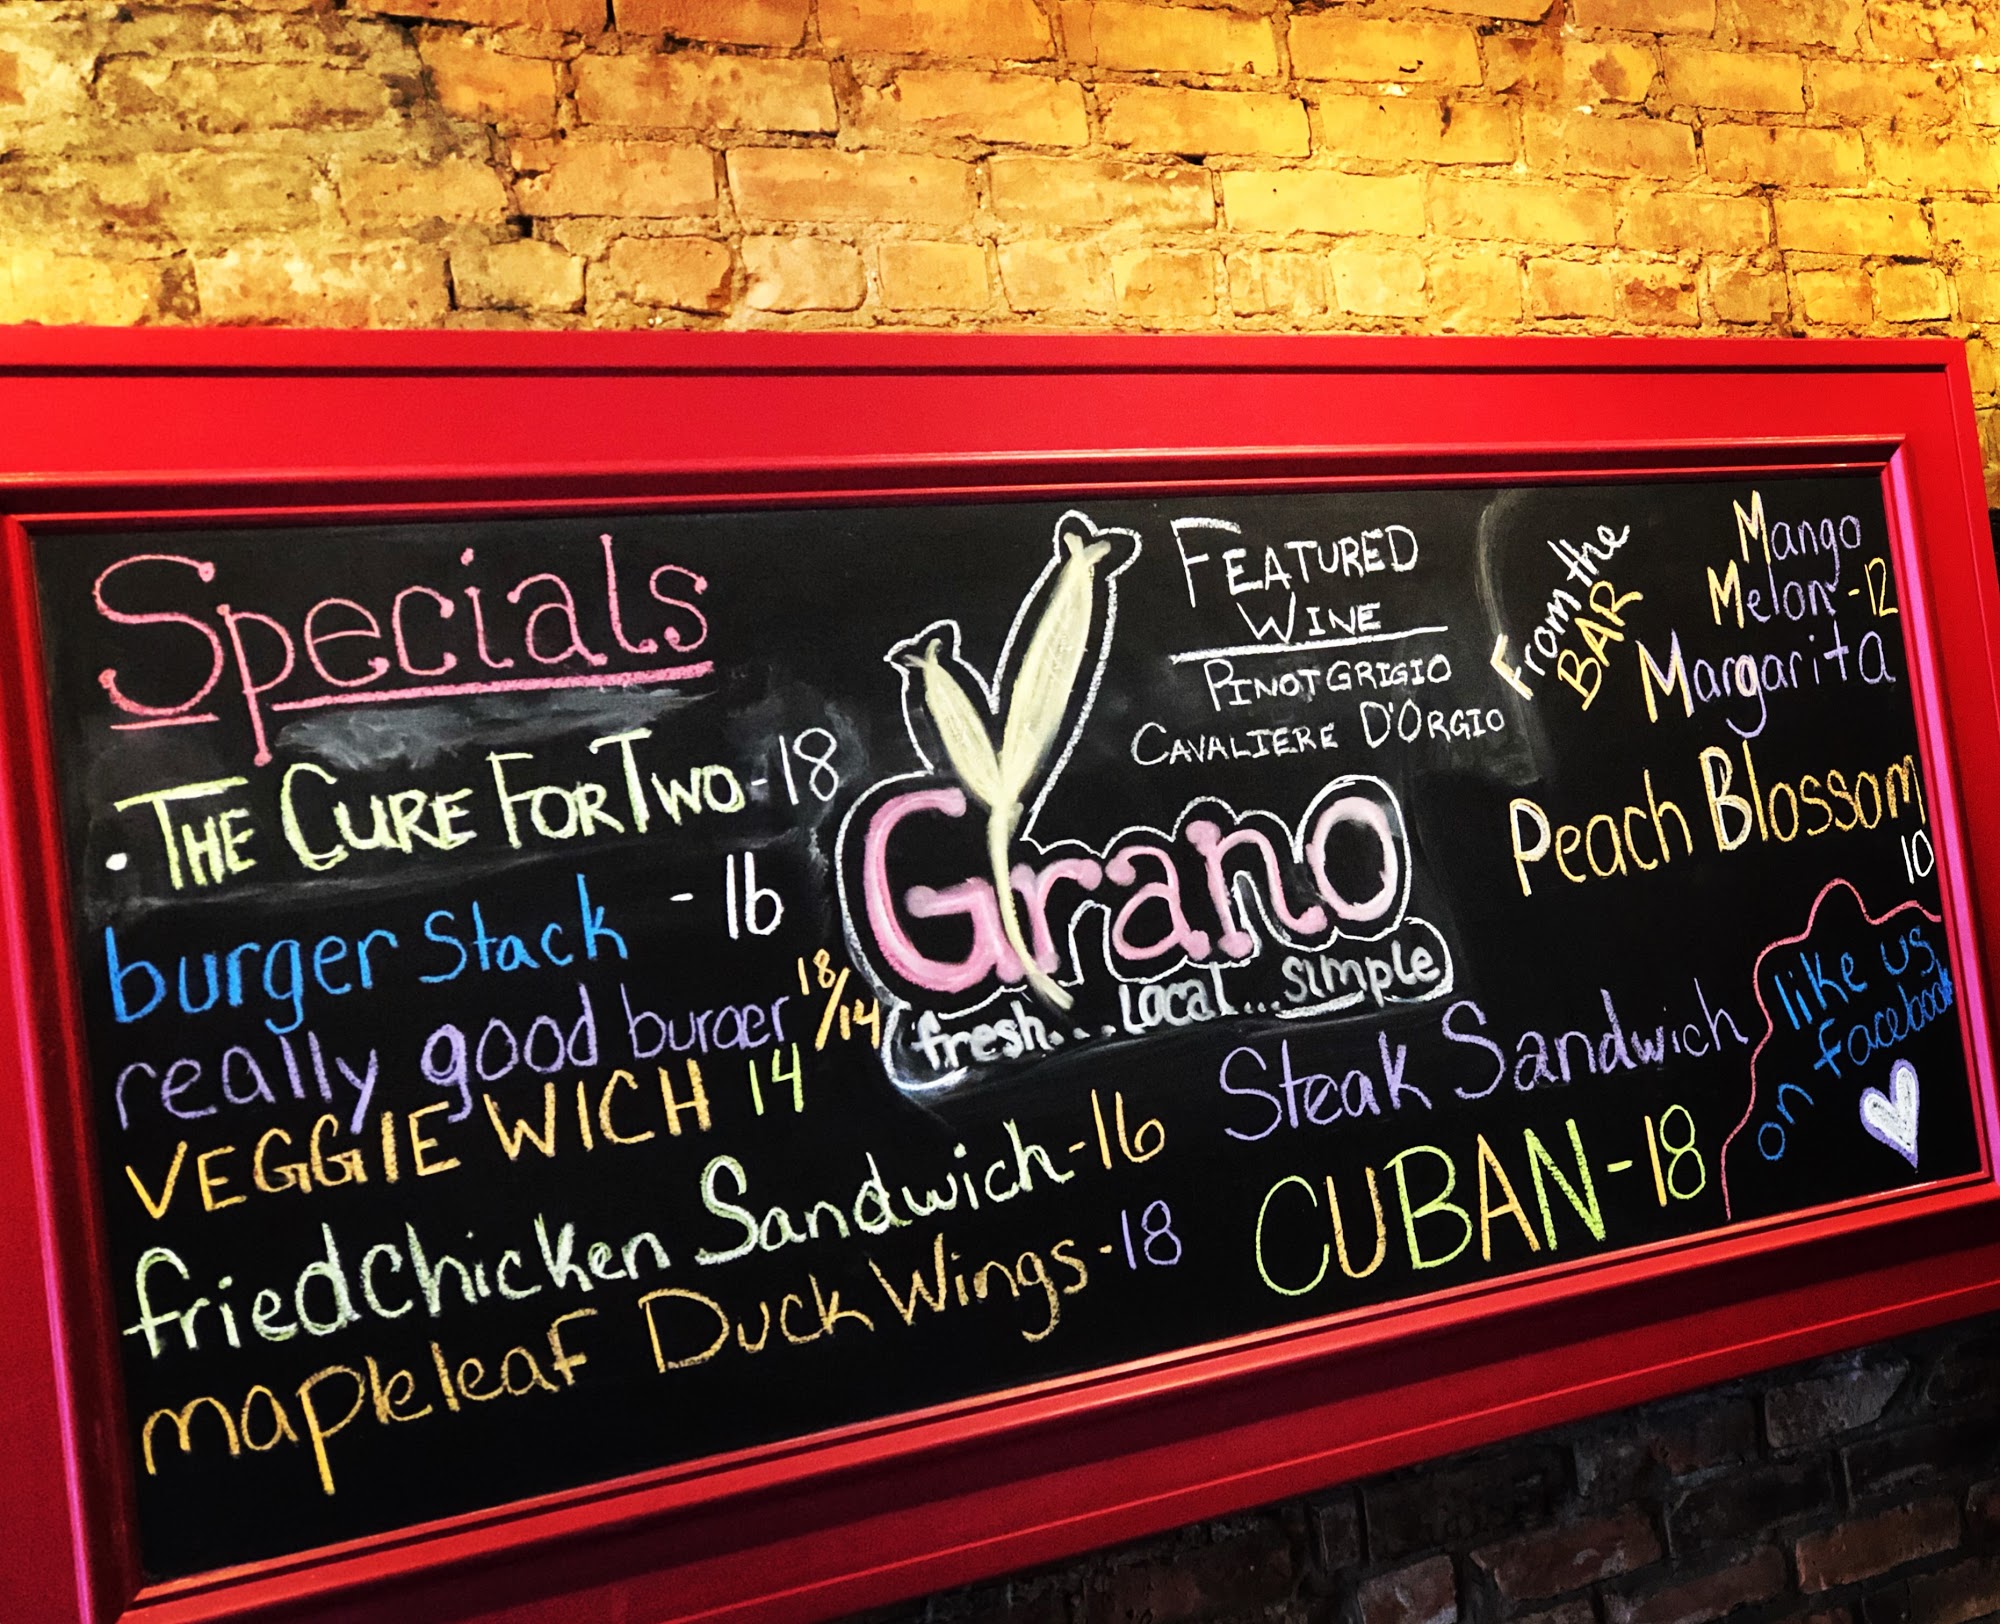 Specials
• THE CURE FOR TWO - 18
burger Stack - 16
really good burger 18/14
VEGGIE WICH 14
fried Chicken Sandwich - 16
mapleleaf Duck Wings - 18
Grano
fresh... Local... simple
FEATURED
WINE
PINOT GRIGIO
CAVALIERE D'ORGIO
From the
BAR
Mango
Melon - 12
Margarita
Peach Blossom
10
Steak Sandwich
CUBAN - 18
like us
on facebook